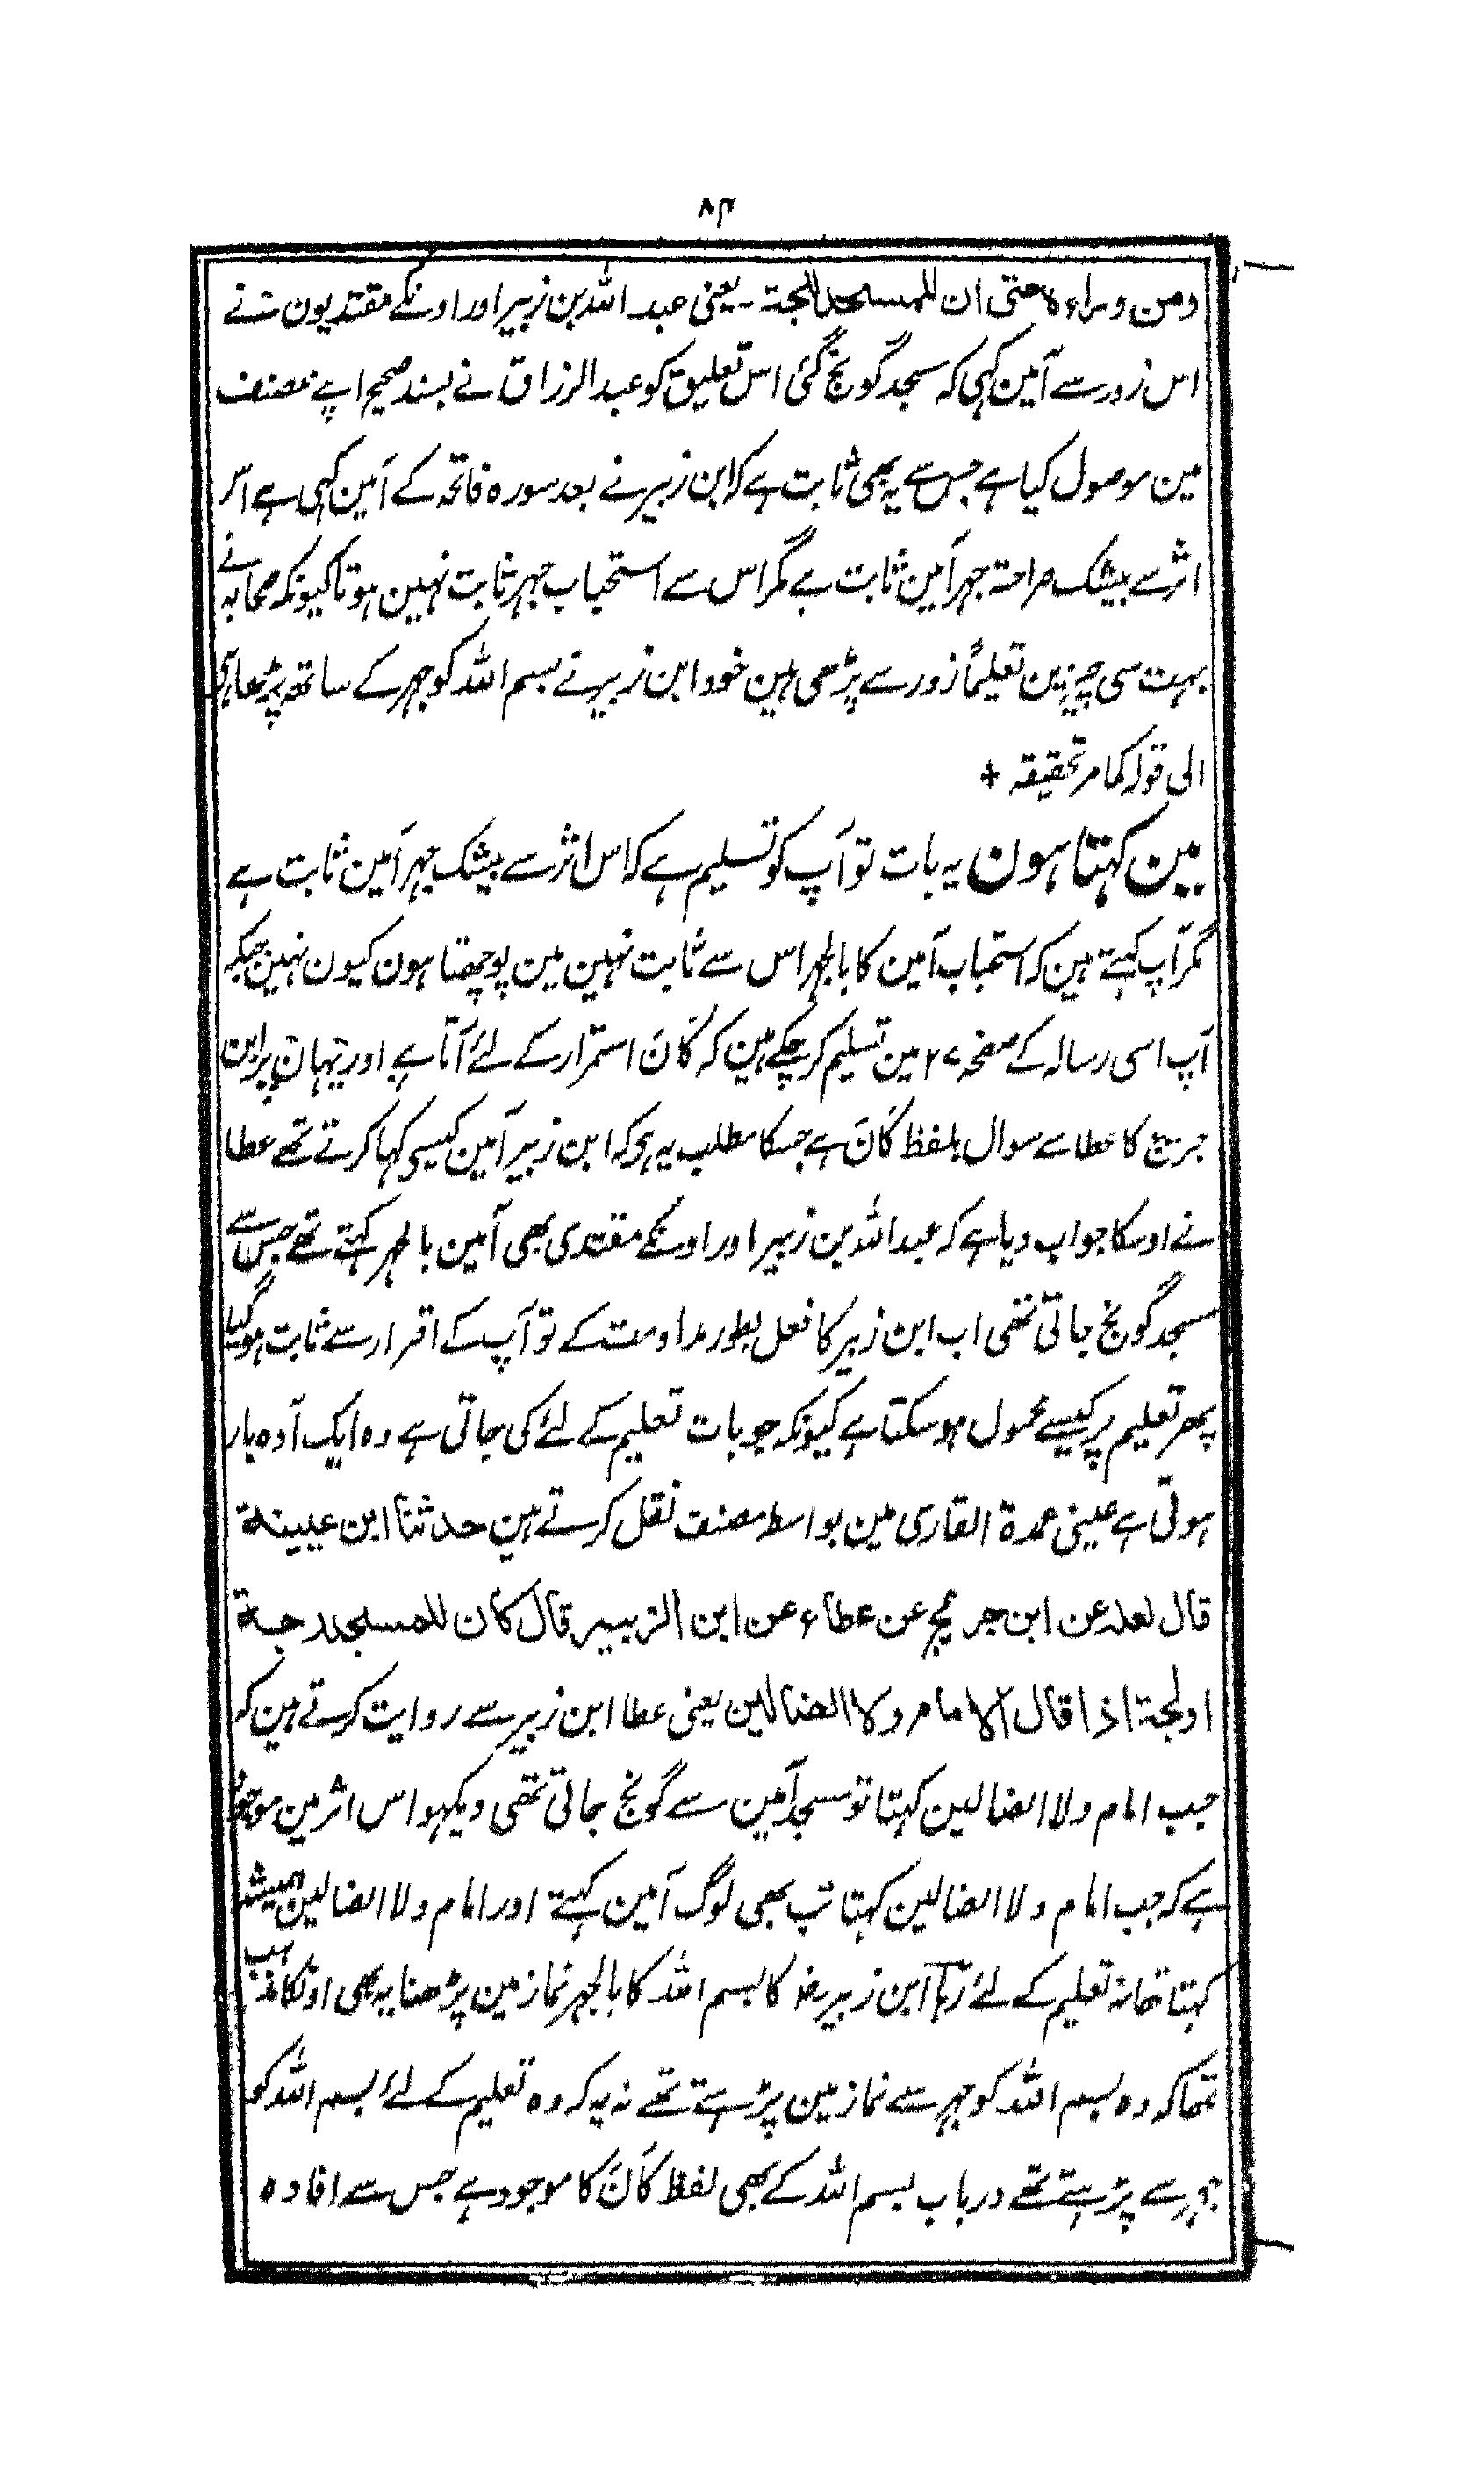 ۸۴
ومن وراءہ حتی ان للمسجد للجۃ ۔ یعنی عبد اللہ بن زبیر اور اونکے مقتدیون نے
اس زور سے آمین کہی کہ مسجد گونج گئی اس تعلیق کو عبدالرزاق نے بسند صحیح اپنے مصنف
مین موصول کیا ہے جس سے یہ بھی ثابت ہے کہ ابن زبیر نے بعد سورہ فاتحہ کے آمین کہی ہے اس
اثر سے بیشک صراحۃ جہر آمین ثابت ہے مگر اس سے استحباب جہر ثابت نہین ہوتا کیونکہ صحابہ نے
بہت سی چیزین تعلیماً زور سے پڑھی ہین خود ابن زبیر نے بسم اللہ کو جہر کے ساتھ پڑھا ہی
الی قولہ کما مر تحقیقہ +
مین کہتا ہون یہ بات تو آپ کو تسلیم ہے کہ اس اثر سے بیشک جہر آمین ثابت ہے
مگر آپ کہتے ہین کہ استحباب آمین کا بالجہر اس سے ثابت نہین مین پوچھتا ہون کیون نہین جبکہ
آپ اسی رسالہ کے صفحہ ۲۷ مین تسلیم کر چکے ہین کہ کَانَ استمرار کے لئے آتا ہے اور یہان پر ابن
جریج کا عطا سے سوال بلفظ کَانَ ہے جسکا مطلب یہ ہی کہ ابن زبیر آمین کیسی کہا کرتے تھے عطا
نے اوسکا جواب دیا ہے کہ عبداللہ بن زبیر اور اونکے مقتدی بھی آمین بالجہر کہتے تھے جس سے
مسجد گونج جاتی تھی اب ابن زبیر کا فعل بطور مداومت کے تو آپ کے اقرار سے ثابت ہوگیا
پھر تعلیم پر کیسے محمول ہوسکتا ہے کیونکہ جو بات تعلیم کے لئے کی جاتی ہے وہ ایک آدہ بار
ہوتی ہے عینی عمدۃ القاری مین بواسطہ مصنف نقل کرتے ہین حدثنا ابن عیینۃ
قال لعلہ عن ابن جریج عن عطاء عن ابن الزبیر قال کان للمسجد رجۃ
اولجۃ اذا قال الامام ولا الضالین یعنی عطا ابن زبیر سے روایت کرتے ہین کہ
جب امام ولا الضالین کہتا تو مسجد آمین سے گونج جاتی تھی دیکہو اس اثر مین موجود
ہے کہ جب امام ولا الضالین کہتا تب بھی لوگ آمین کہتے اور امام ولا الضالین ہمیشہ
کہتا تھا نہ تعلیم کے لئے رہا ابن زبیر رضہ کا بسم اللہ کا بالجہر نماز مین پڑھنا یہ بھی اونکا مذہب
تھا کہ وہ بسم اللہ کو جہر سے نماز مین پڑہتے تھے نہ یہ کہ وہ تعلیم کے لئے بسم اللہ کو
جہر سے پڑہتے تھے درباب بسم اللہ کے بھی لفظ کَانَ کا موجود ہے جس سے افادہ